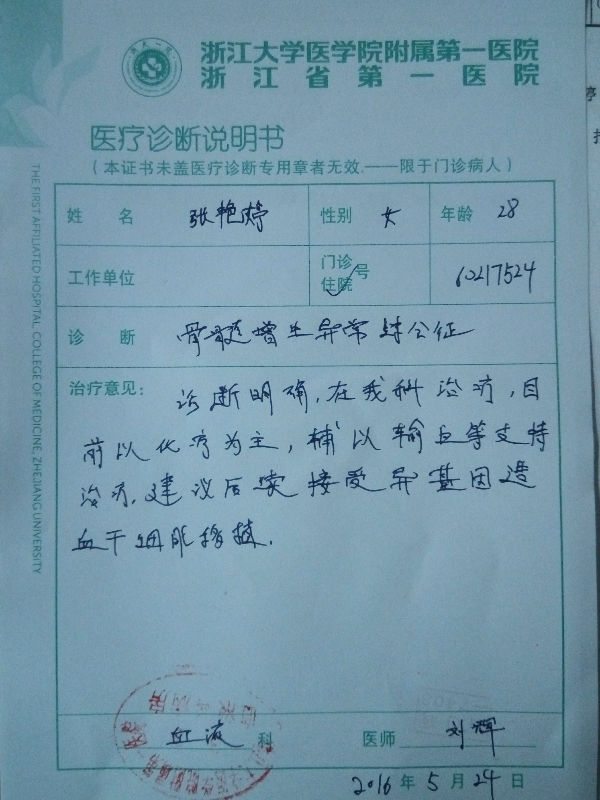 浙江大学医学院附属第一医院
浙江省第一医院
医疗诊断说明书
（本证书未盖医疗诊断专用章者无效.——限于门诊病人）
THE FIRST AFFILIATED HOSPITAL COLLEGE OF MEDICINE, ZHEJIANG UNIVERSITY
姓 名 张艳婷 性别 女 年龄 28
工作单位 门诊 住院 号 60217524
诊 断 骨髓增生异常综合征
治疗意见： 诊断明确，在我科治疗，目
前以化疗为主，辅以输血等支持
治疗，建议后续接受异基因造
血干细胞移植.
血液 科 医师 刘辉
2016 年 5 月 24 日